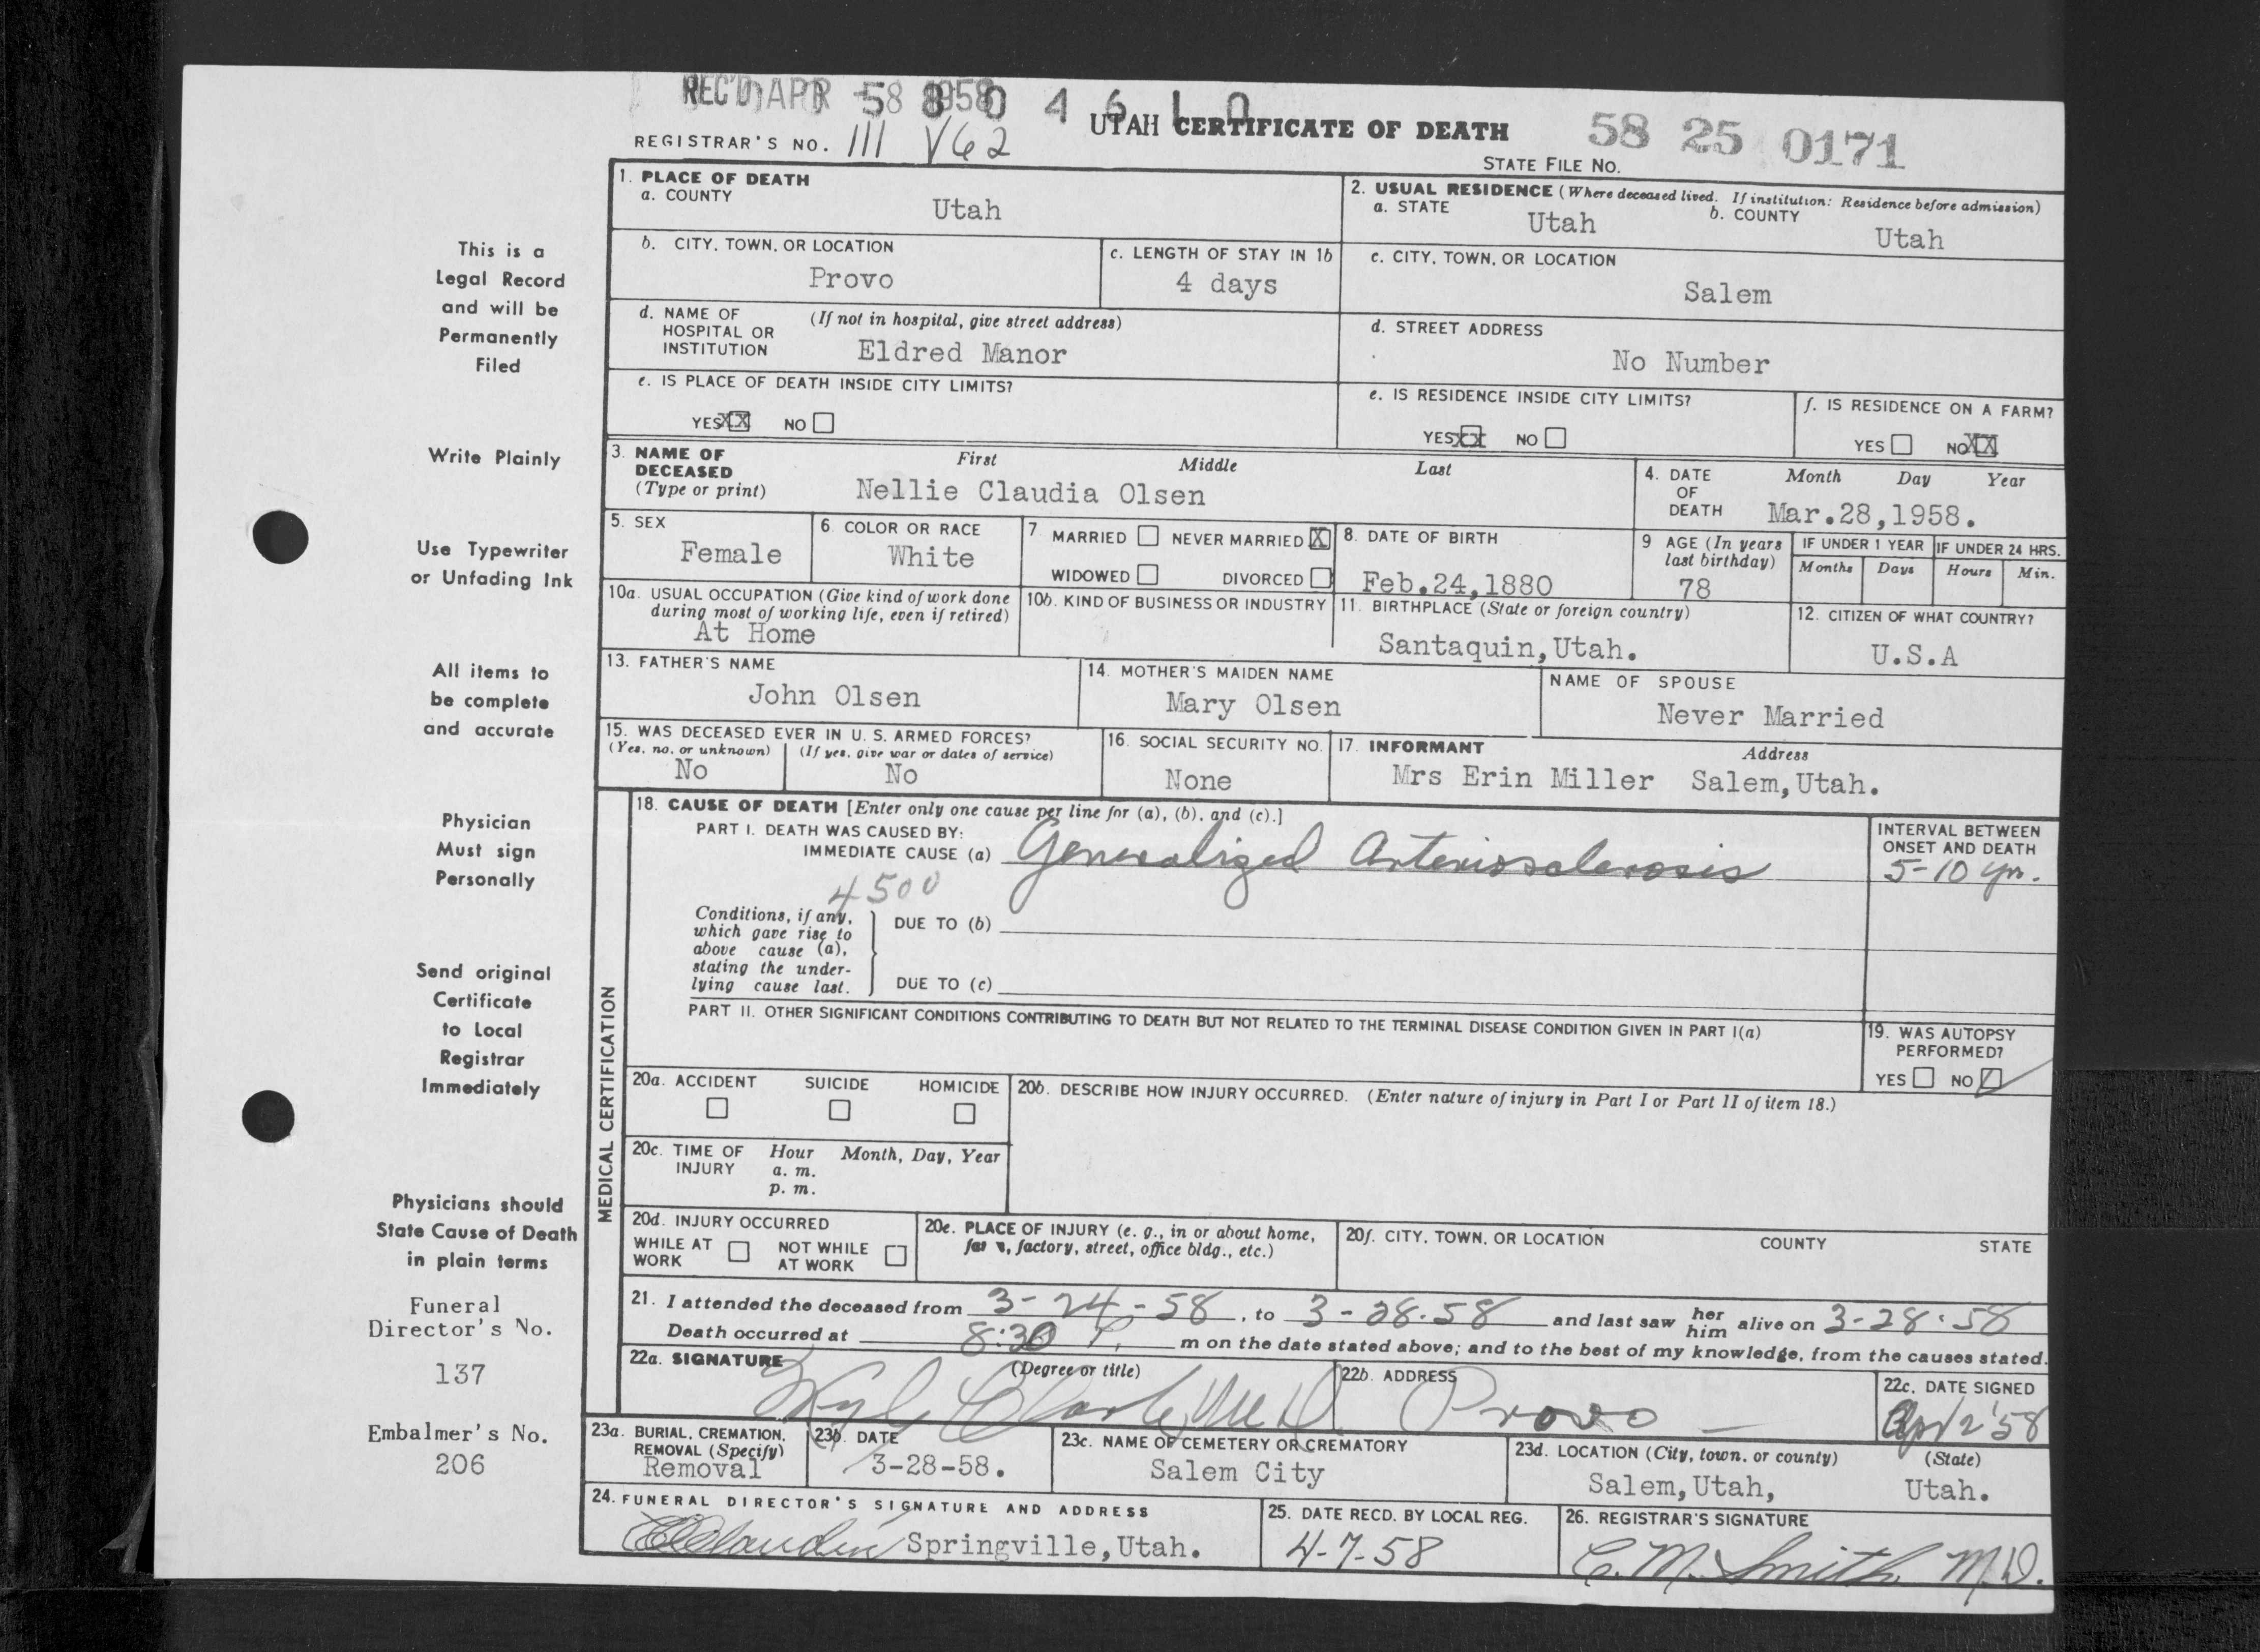 REC'D APR 58 1958 0 4 6 1 0
UTAH CERTIFICATE OF DEATH
58 25 0171
REGISTRAR'S NO. 111 V62
STATE FILE NO.
This is a
Legal Record
and will be
Permanently
Filed
Write Plainly
Use Typewriter
or Unfading Ink
All items to
be complete
and accurate
Physician
Must sign
Personally
Send original
Certificate
to Local
Registrar
Immediately
Physicians should
State Cause of Death
in plain terms
Funeral
Director's No.
137
Embalmer's No.
206
1. PLACE OF DEATH
a. COUNTY
Utah
2. USUAL RESIDENCE (Where deceased lived. If institution: Residence before admission)
a. STATE Utah b. COUNTY Utah
b. CITY, TOWN, OR LOCATION
Provo
c. LENGTH OF STAY IN 1b
4 days
c. CITY, TOWN, OR LOCATION
Salem
d. NAME OF HOSPITAL OR INSTITUTION (If not in hospital, give street address)
Eldred Manor
d. STREET ADDRESS
No Number
e. IS PLACE OF DEATH INSIDE CITY LIMITS?
YES XX NO
e. IS RESIDENCE INSIDE CITY LIMITS?
YES XX NO
f. IS RESIDENCE ON A FARM?
YES NO XX
3. NAME OF DECEASED (Type or print)
First Middle Last
Nellie Claudia Olsen
4. DATE OF DEATH Month Day Year
Mar.28,1958.
5. SEX
Female
6. COLOR OR RACE
White
7 MARRIED NEVER MARRIED X
WIDOWED DIVORCED
8. DATE OF BIRTH
Feb.24,1880
9 AGE (In years last birthday)
78
IF UNDER 1 YEAR
Months Days
IF UNDER 24 HRS.
Hours Min.
10a. USUAL OCCUPATION (Give kind of work done during most of working life, even if retired)
At Home
10b. KIND OF BUSINESS OR INDUSTRY
11. BIRTHPLACE (State or foreign country)
Santaquin,Utah.
12. CITIZEN OF WHAT COUNTRY?
U.S.A
13. FATHER'S NAME
John Olsen
14. MOTHER'S MAIDEN NAME
Mary Olsen
NAME OF SPOUSE
Never Married
15. WAS DECEASED EVER IN U. S. ARMED FORCES?
(Yes, no, or unknown) (If yes, give war or dates of service)
No No
16. SOCIAL SECURITY NO.
None
17. INFORMANT Address
Mrs Erin Miller Salem,Utah.
MEDICAL CERTIFICATION
18. CAUSE OF DEATH [Enter only one cause per line for (a), (b), and (c).]
PART I. DEATH WAS CAUSED BY:
IMMEDIATE CAUSE (a) Generalized Arteriosclerosis
INTERVAL BETWEEN ONSET AND DEATH
5-10 yr.
4500
Conditions, if any, which gave rise to above cause (a), stating the underlying cause last.
DUE TO (b)
DUE TO (c)
PART II. OTHER SIGNIFICANT CONDITIONS CONTRIBUTING TO DEATH BUT NOT RELATED TO THE TERMINAL DISEASE CONDITION GIVEN IN PART I(a)
19. WAS AUTOPSY PERFORMED?
YES NO
20a. ACCIDENT SUICIDE HOMICIDE
20b. DESCRIBE HOW INJURY OCCURRED. (Enter nature of injury in Part I or Part II of item 18.)
20c. TIME OF INJURY Hour Month, Day, Year
a. m.
p. m.
20d. INJURY OCCURRED
WHILE AT WORK NOT WHILE AT WORK
20e. PLACE OF INJURY (e. g., in or about home, farm, factory, street, office bldg., etc.)
20f. CITY, TOWN, OR LOCATION COUNTY STATE
21. I attended the deceased from 3-24-58, to 3-28-58 and last saw her him alive on 3-28-58
Death occurred at 8:30 P. m on the date stated above; and to the best of my knowledge, from the causes stated.
22a. SIGNATURE (Degree or title)
Clark M.D.
22b. ADDRESS
Provo
22c. DATE SIGNED
Apr 2 '58
23a. BURIAL, CREMATION, REMOVAL (Specify)
Removal
23b. DATE
3-28-58.
23c. NAME OF CEMETERY OR CREMATORY
Salem City
23d. LOCATION (City, town, or county) (State)
Salem,Utah, Utah.
24. FUNERAL DIRECTOR'S SIGNATURE AND ADDRESS
Springville,Utah.
25. DATE RECD. BY LOCAL REG.
4-7-58
26. REGISTRAR'S SIGNATURE
C. M. Smith M.D.